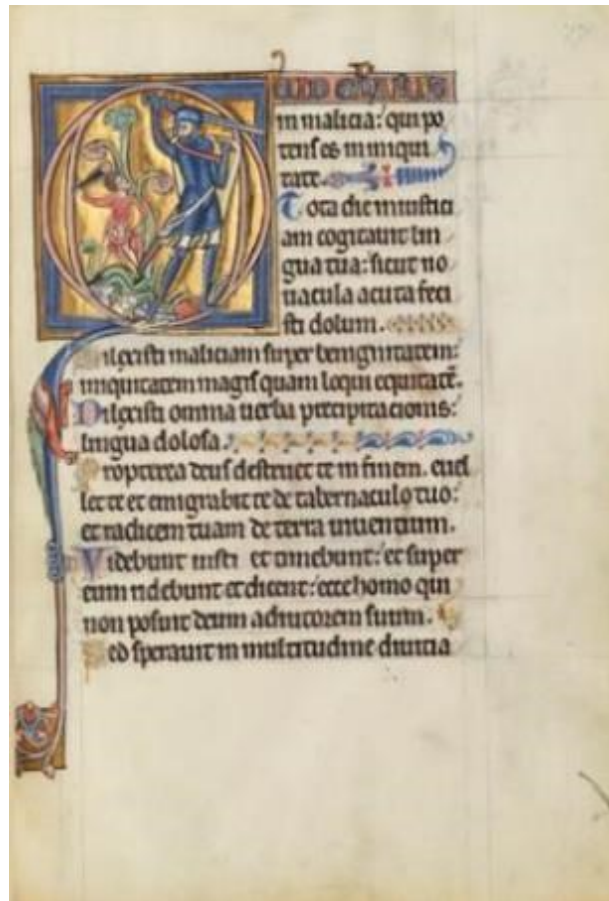 QUID
in malicia: qui po
tens es in iniqui
tate.
Tota die iniustici
am cogitauit lin
gua tua: sicut no
uacula acuta feci
sti dolum.
Dilexisti maliciam super benignitatem:
iniquitatem magis quam loqui equitatē.
Dilexisti omnia uerba precipitacionis:
lingua dolosa.
Propterea deus destruet te in finem. euel
let te et emigrabit te de tabernaculo tuo:
et radicem tuam de terra uiuentium.
Videbunt iusti et timebunt: et super
eum ridebunt et dicent: ecce homo qui
non posuit deum adiutorem suum.
Sed sperauit in multitudine diuicia